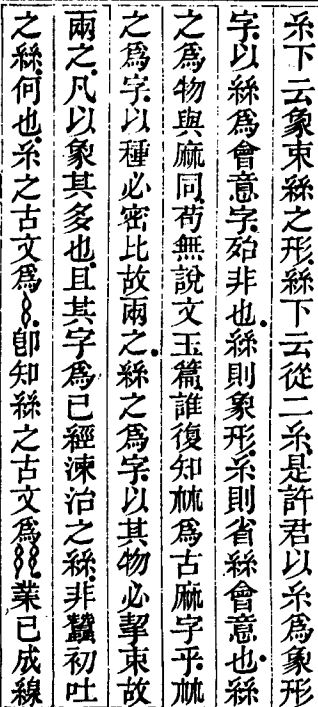 糸下云象束絲之形.絲下云從二糸.是許君以糸爲象形
字.以絲爲會意字.殆非也.絲則象形.糸則省絲會意也.絲
之爲物與麻同.苟無說文玉篇.誰復知𣏟爲古麻字乎.𣏟
之爲字.以種必密比故兩之.絲之爲字.以其物必挈束故
兩之.凡以象其多也.且其字爲已經湅治之絲.非蠶初吐
之絲.何也.糸之古文爲.卽知絲之古文爲.業已成線